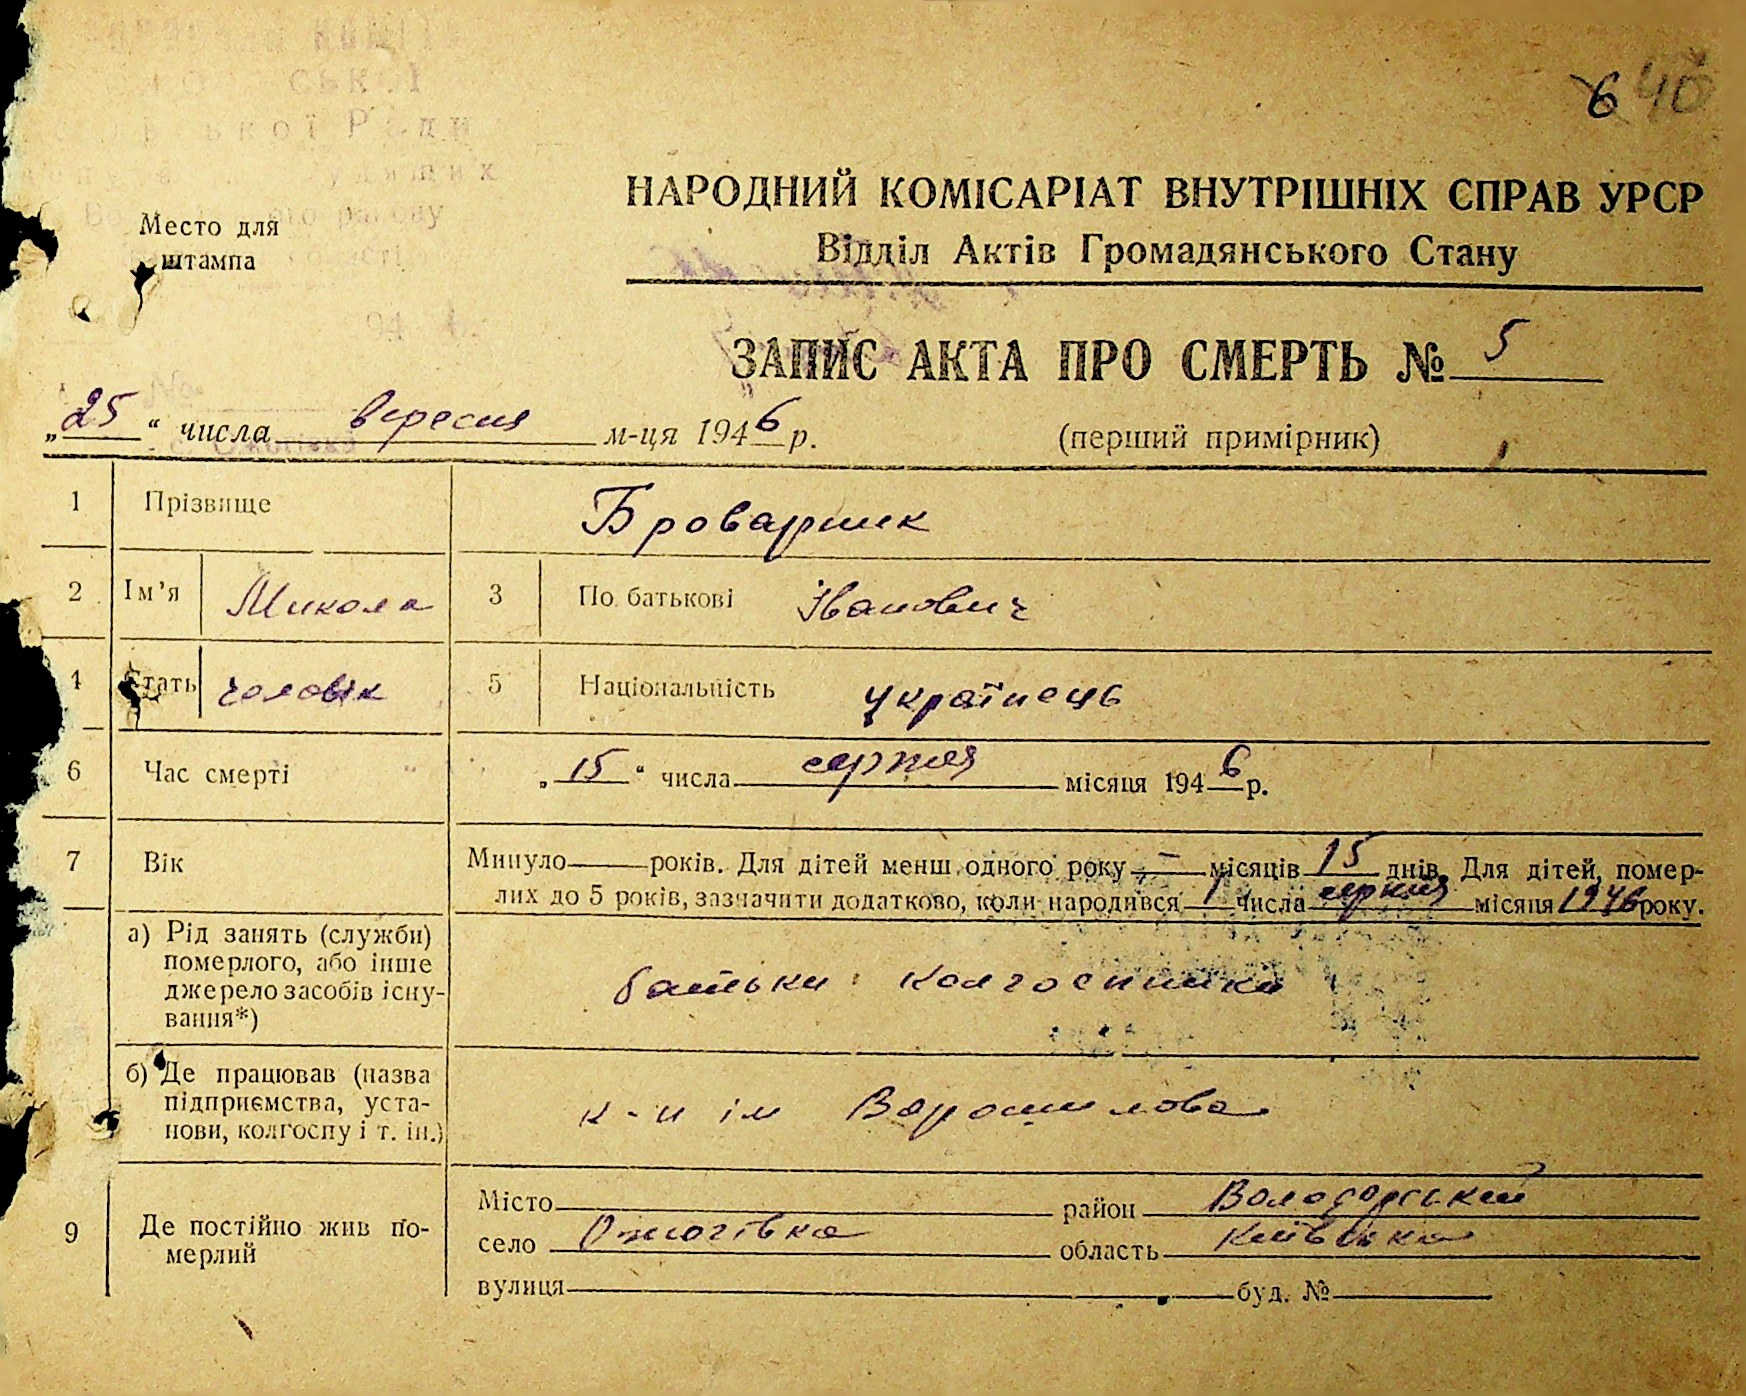 6 40
НАРОДНИЙ КОМІСАРІАТ ВНУТРІШНІХ СПРАВ УРСР
Відділ Актів Громадянського Стану
Место для
штампа
ЗАПИС АКТА ПРО СМЕРТЬ № 5
„25“ числа вересня м-ця 1946 р.
(перший примірник)
1 Прізвище Броварник
2 Ім’я Микола 3 По батькові Іванович
4 Стать чоловік 5 Національність українець
6 Час смерті „15“ числа серпня місяця 1946 р.
7 Вік Минуло років. Для дітей менш одного року – місяців 15 днів. Для дітей, помер-
лих до 5 років, зазначити додатково, коли народився 1 числа серпня місяця 1946 року.
а) Рід занять (служби)
померлого, або інше
джерело засобів існу-
вання*)
батьки колгоспники
б) Де працював (назва
підприємства, уста-
нови, колгоспу і т. ін.)
к-п ім Ворошилова
9 Де постійно жив по-
мерлий
Місто район Володарський
село Ожогівка область Київська
вулиця буд. №